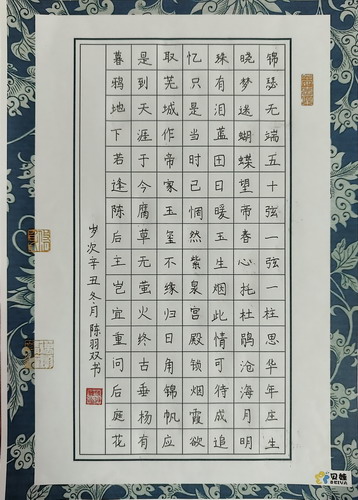 锦瑟无端五十弦一弦一柱思华年庄生
晓梦迷蝴蝶望帝春心托杜鹃沧海月明
珠有泪蓝田日暖玉生烟此情可待成追
忆只是当时已惘然紫泉宫殿锁烟霞欲
取芜城作帝家玉玺不缘归日角锦帆应
是到天涯于今腐草无萤火终古垂杨有
暮鸦地下若逢陈后主岂宜重问后庭花
岁次辛丑冬月陈羽双书